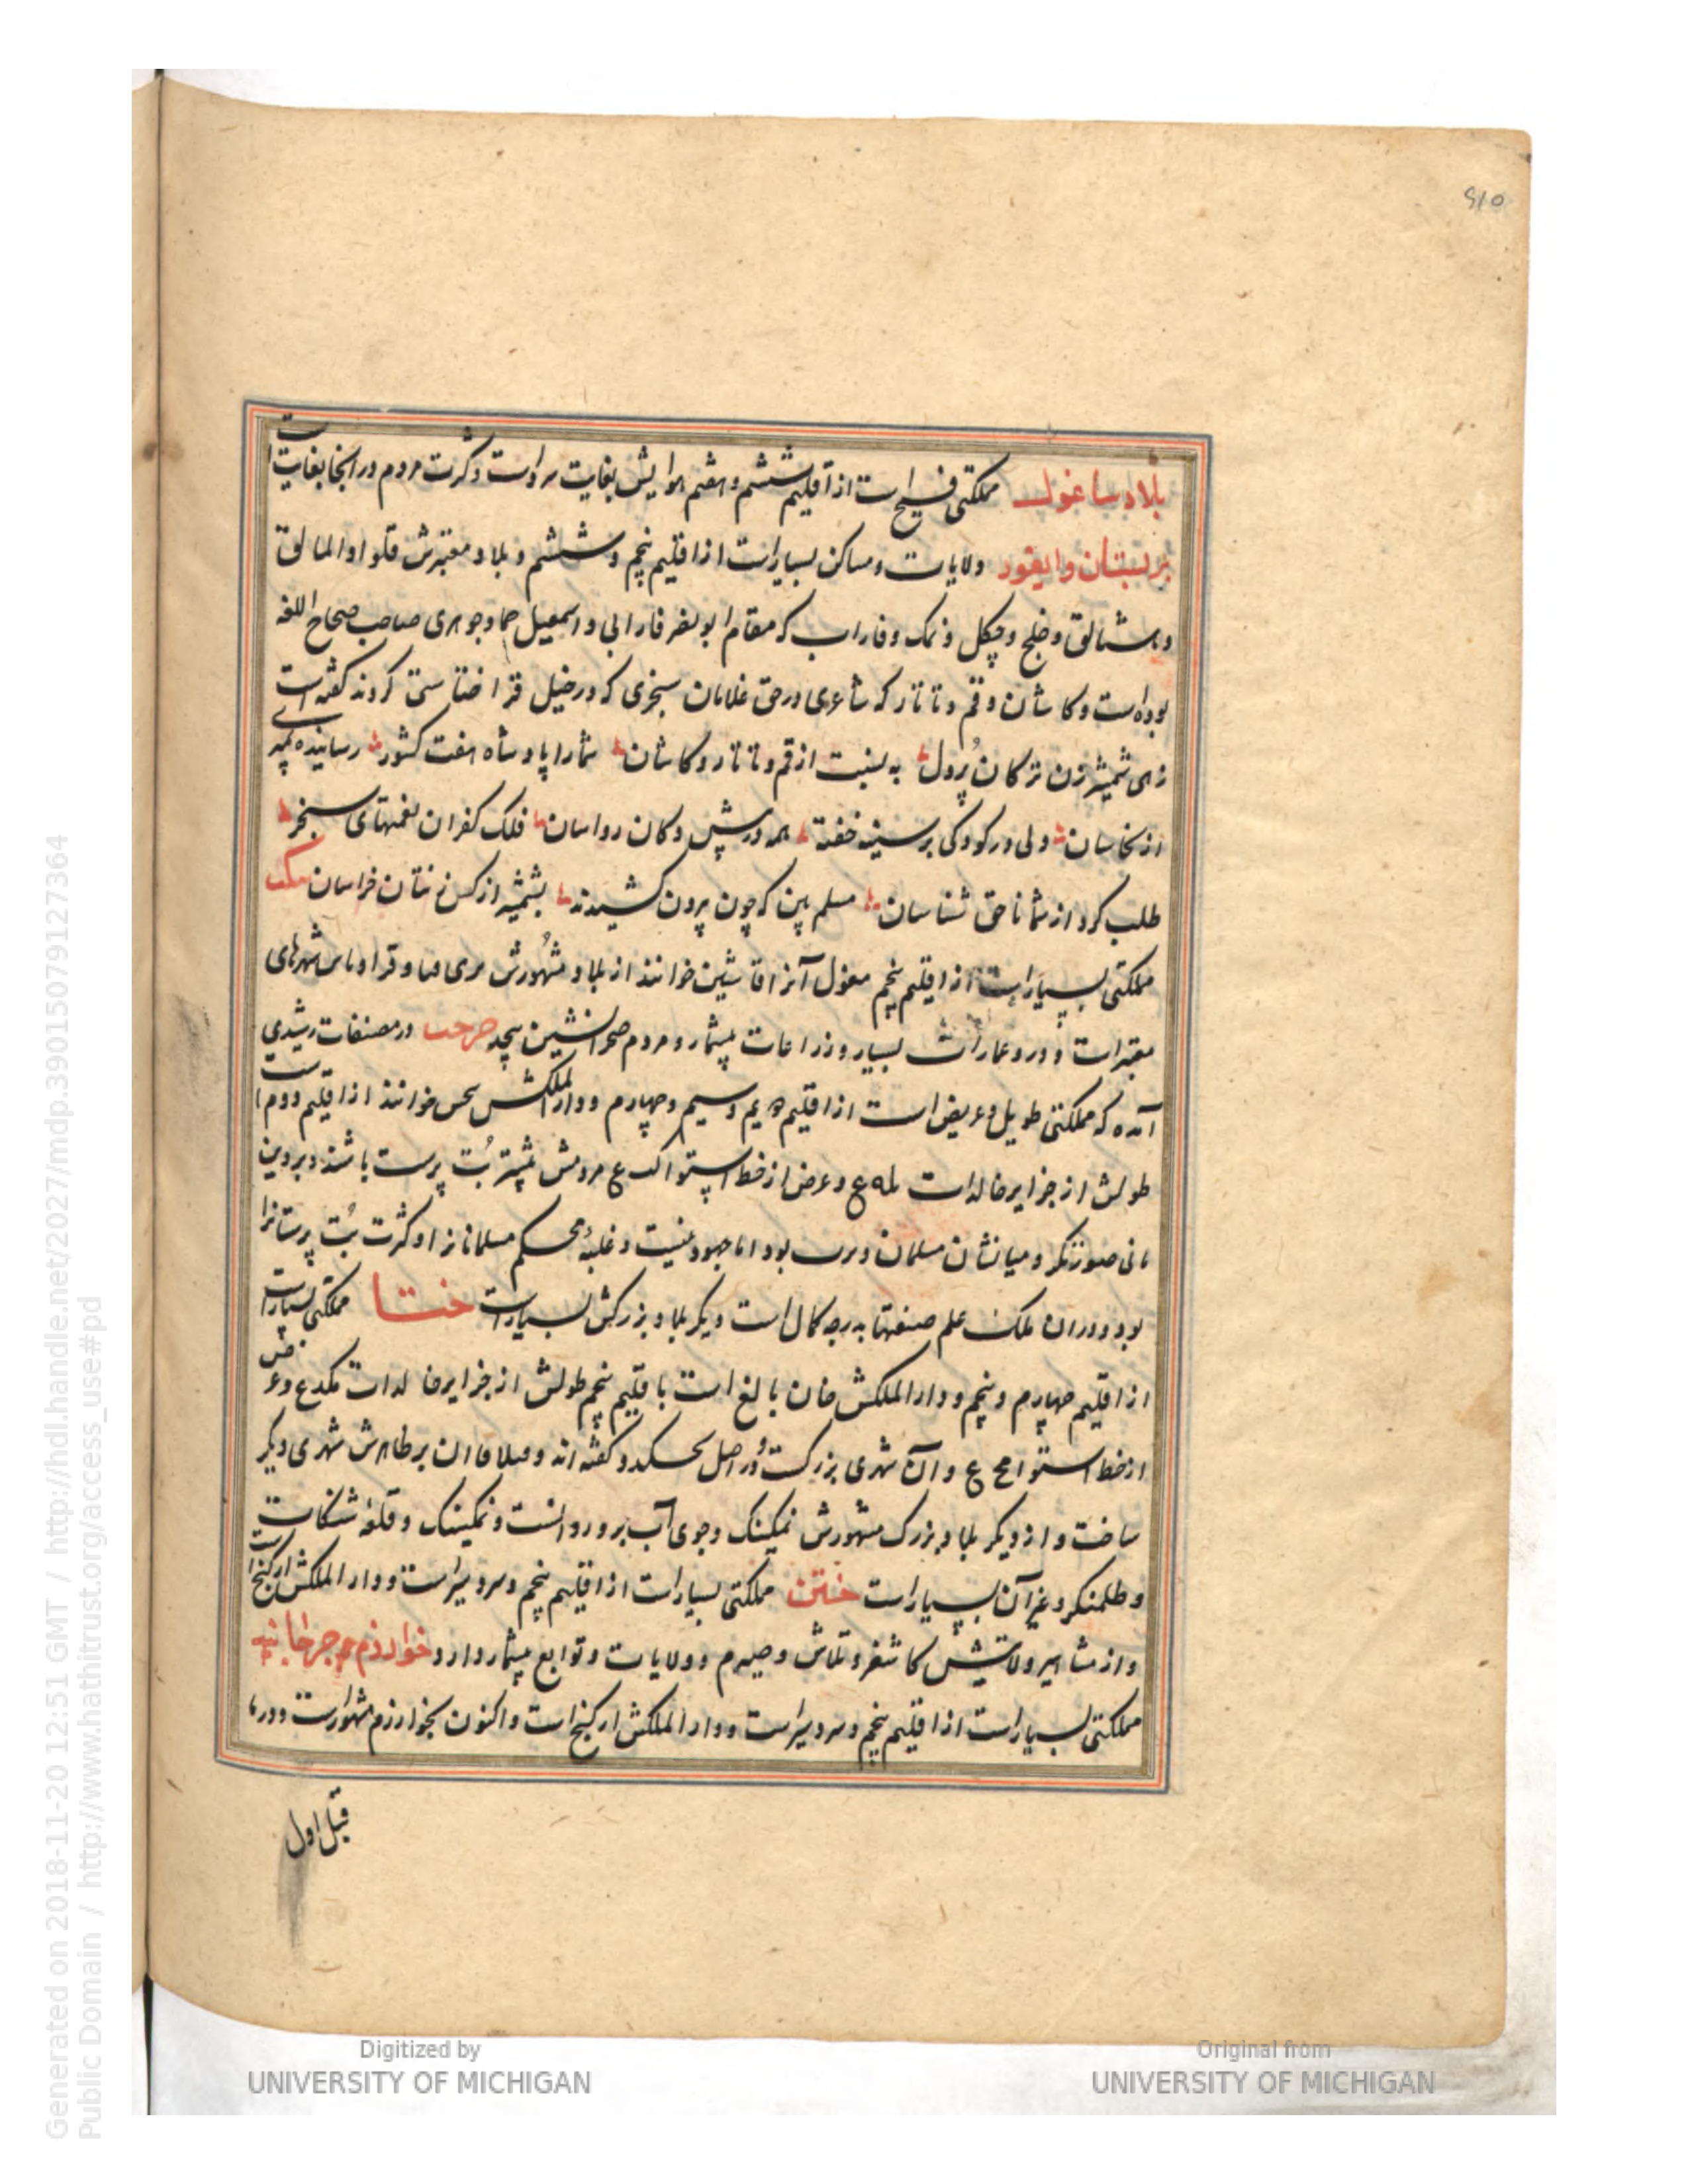 ۵۱۵
بلاد ساغول مملکتی فسیح است از اقلیم ششم و هفتم هوایش بغایت سردست و کرت مردم در انجا بغایت است
برستان و ایقود ولایات و مساکن بسیار است از اقلیم پنجم و ششم و بلاد معتبرش قلو او المالق
و بشالق و خلج و چکل و نمک و فاراب که مقام ابو نصر فارابی و اسمعیل حماد جوهری صاحب صحاح اللغه
بوده است و کاشان و قم و تاتار که شاعری در حق غلامان سنجری که در خیل قرا ختا سستی کردند کفته است
زهی شمشیر زن ترکان پردل به نسبت از قم و تاتار و کاشان شما را پادشاه هفت کشور رسانیده
از نخاسان ولی در کودکی بر سینه خفته همه در پیش دکان رواسان فلک کفران نعمتهای سنجر
طلب کرد از شما ناحق شناسان مسلم بین که چون بیرون کشیدند بشمشیر از کس زنتان خراسان
مملکتی بسیار است از اقلیم پنجم مغول آنرا قاشین خوانند از بلاد مشهورش شهرهای
معتبرات و درو عمارات بسیار و زراعات بیشمار و مردم صحرا نشین بیحد در مصنفات رشیدی
آمده که مملکتی طویل و عریض است از اقلیم دویم و سیم و چهارم و دار الملکش خوانند از اقلیم دوم است
طولش از جزایر خالدات و عرض از خط استوا مردمش بیشتر بت پرست باشند و بر دین
مانی صورتکر و میانشان مسلمان و بود اما جهود نیست و غلبه و تحکم مسلمانانرا و کثرت بت پرستانرا
بود و در آن ملک علم صنعتها بدرجه کمال است دیکر بلاد بزرکش بسیار است ختا مملکتی بسیار است
از اقلیم چهارم و پنجم و دار الملکش خان بالغ است باقلیم پنجم طولش از جزایر خالدات و عرض
از خط استوا و آن شهری بزرکست در اصل کفته اند و بر ظاهرش شهری دیکر
ساخت و از دیکر بلاد بزرک مشهورش نمکینک و جوی آب برو روانست و نمکینک و قلعه شکات
و طلمنکر و غیر آن بسیار است ختن مملکتی بسیار است از اقلیم پنجم و سردسیر است و دار الملکش ارکنج است
و از مشاهیر ولایتش کاشغر و تلاش و صیرم و ولایات و توابع بیشمار دارد خوارزم و جرجانیه
مملکتی بسیار است از اقلیم پنجم و سردسیر است و دار الملکش ارکنج است و اکنون بخوارزم مشهورست و در ما
قبل اول
Generated on 2018-11-20 12:51 GMT / http://hdl.handle.net/2027/mdp.39015079127364
Public Domain / http://www.hathitrust.org/access_use#pd
Digitized by
UNIVERSITY OF MICHIGAN
Original from
UNIVERSITY OF MICHIGAN